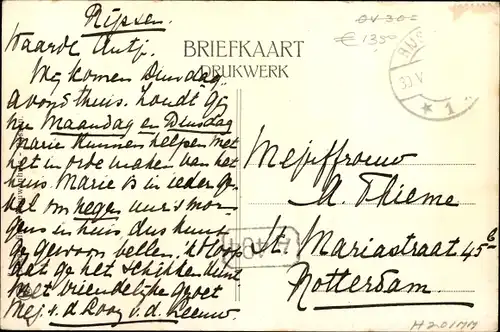 Rijssen.
Waarde Antj.
Wij komen Dinsdag
avond thuis. Zoudt gij
nu Maandag en Dinsdag
Marie kunnen helpen met
het in orde maken van het
huis. Marie is in ieder ge-
val om negen uur 's mor-
gens in huis, dus kunt
gij gewoon bellen. 'k Hoop
dat ge het schikken kunt
met vriendelijke groet
Mej. v. d. Looy v. d. Leeuw.
BRIEFKAART
DRUKWERK
€ 1350
30 V
1
Mejuffrouw
A. Thieme
St. Mariastraat 45 b
Rotterdam.
H201717